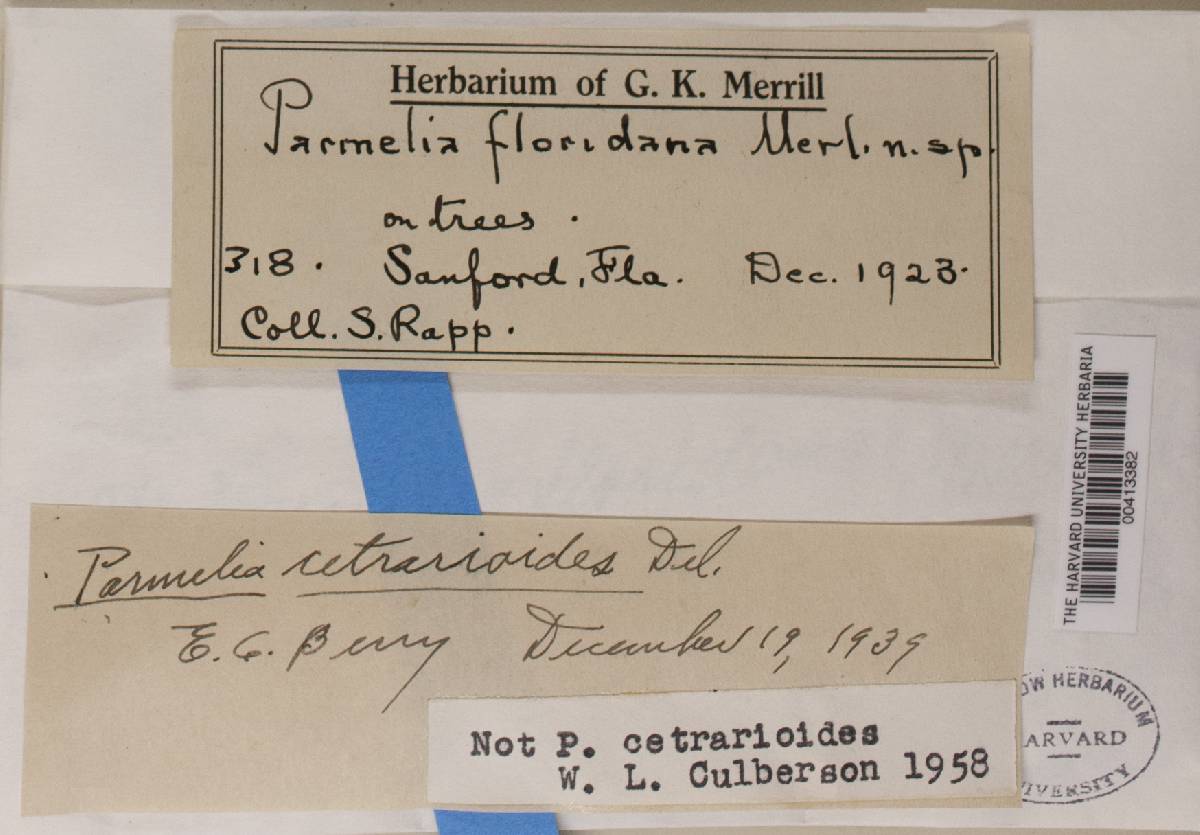 Herbarium of G. K. Merrill
Parmelia floridana Merl. n. sp.
on trees.
318. Sanford, Fla. Dec. 1923.
Coll. S. Rapp.
THE HARVARD UNIVERSITY HERBARIA
00413382
Parmelia cetrarioides Del.
E. C. Berry December 19, 1939
Not P. cetrarioides
W. L. Culberson 1958
OW HERBARIUM
ARVARD
IVERSITY